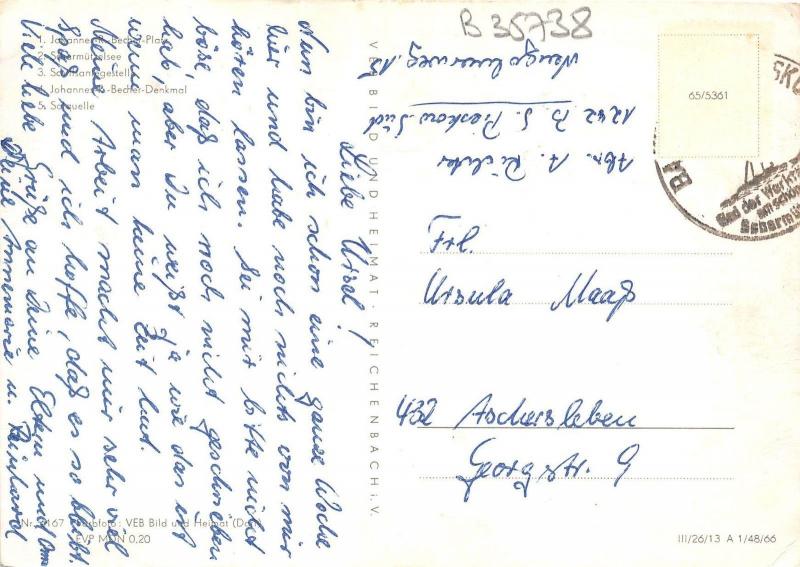 B 35738
1. Johannes-R.-Becher-Platz
2. Scharmützelsee
3. Schiffsanlegestelle
4. Johannes-R.-Becher-Denkmal
5. Solquelle
Liebe Ursel!
Nun bin ich schon eine ganze Woche
hier und habe noch nichts von mir
hören lassen. Sei mir bitte nicht
böse, daß ich noch nicht geschrieben
hab, aber Du weißt ja wie das ist
wenn man keine Zeit hat.
Meine Arbeit macht mir sehr viel
Spaß und ich hoffe, daß es so bleibt.
Viele liebe Grüße an Deine Eltern und Oma
Deine Annemarie u. Reinhard
VEB BILD UND HEIMAT · REICHENBACH i. V.
Abs. A. Richter
1242 B. S. Pieskow Süd
65/5361
Bad der Werktätigen
am schönen
Scharmützelsee
Frl.
Ursula Maaß
432 Aschersleben
Georgstr. 9
Nr. 167 Farbfoto: VEB Bild und Heimat
EVP MDN 0,20
III/26/13 A 1/48/66